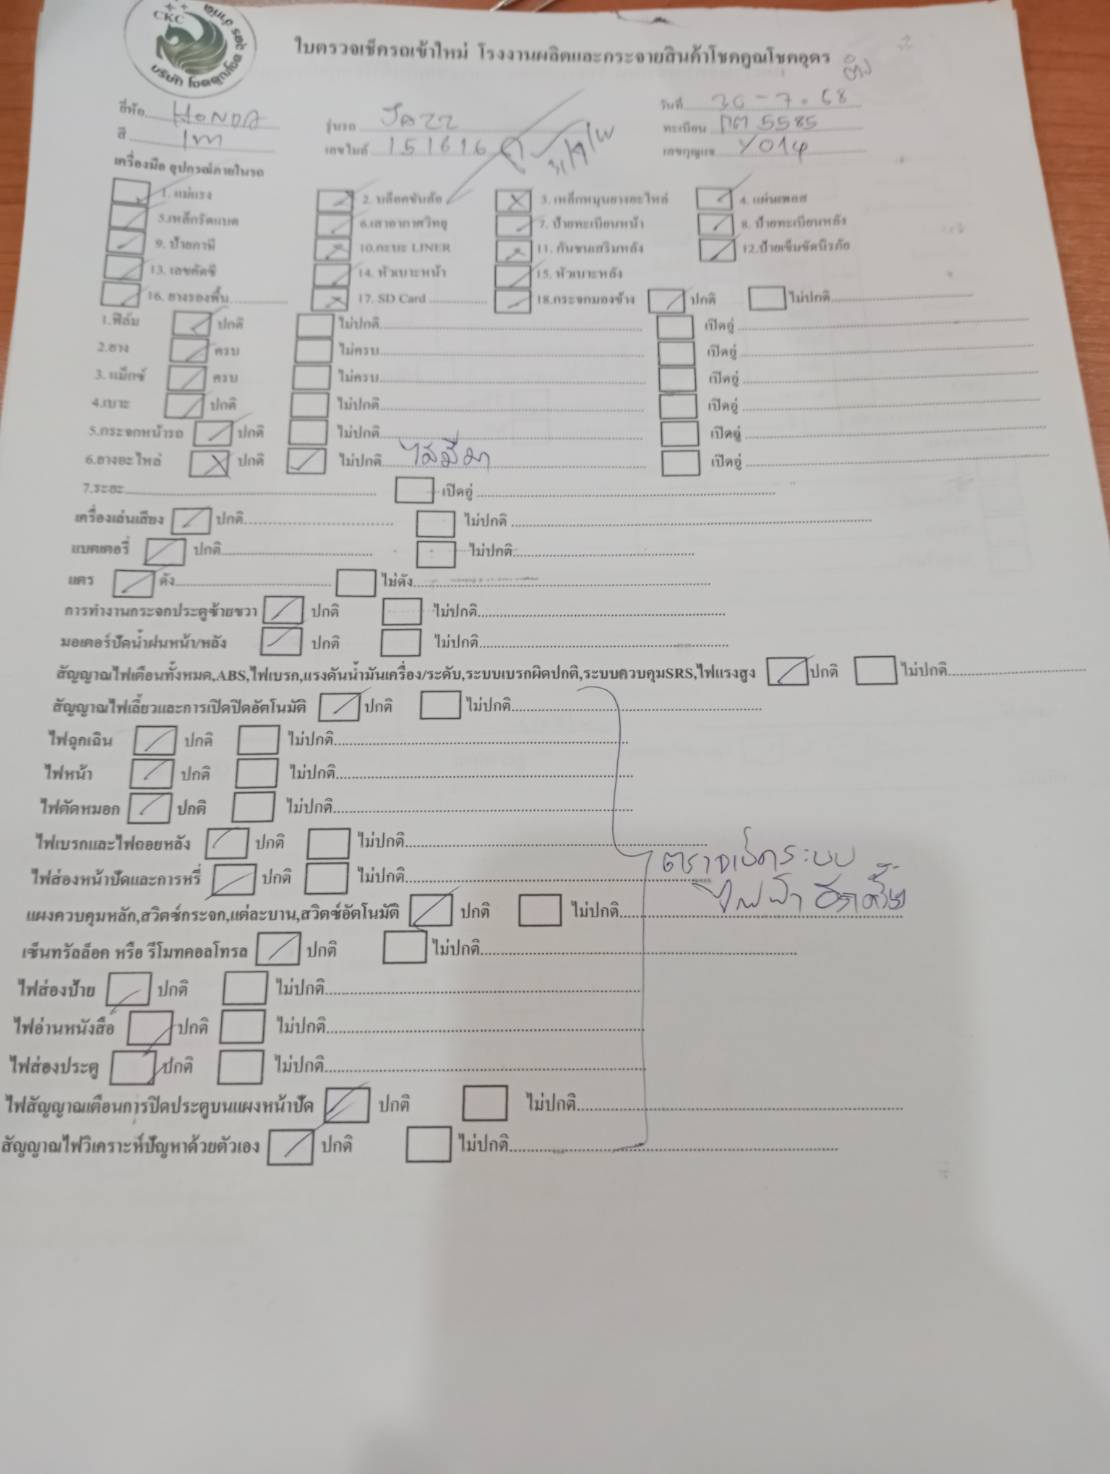 CKC
ใบตรวจเช็ครถเข้าใหม่ โรงงานผลิตและกระจายสินค้าโชคคูณโชคอุดร
ยี่ห้อ HONDA รุ่นรถ Jazz วันที่ 30-7-68
สี เทา เลขไมล์ 151616 ทะเบียน 5585
เลขกุญแจ Y014
เครื่องมือ อุปกรณ์ภายในรถ
1. แม่แรง 2. บล็อคขันล้อ 3. เหล็กหมุนยางอะไหล่ 4. แผ่นเพลส
5.เหล็กรัดแบต 6.เสาอากาศวิทยุ 7. ป้ายทะเบียนหน้า 8. ป้ายทะเบียนหลัง
9. ป้ายภาษี 10.กะบะ LINER 11. กันชนเสริมหลัง 12.ป้ายเข็มขัดนิรภัย
13. เลขคัดซี 14. หัวเบาะหน้า 15. หัวเบาะหลัง
16. ยางรองพื้น 17. SD Card 18.กระจกมองข้าง ปกติ ไม่ปกติ
1.ฟิล์ม ปกติ ไม่ปกติ เปิดอู่
2.ยาง ครบ ไม่ครบ เปิดอู่
3. แม็กซ์ ครบ ไม่ครบ เปิดอู่
4.เบาะ ปกติ ไม่ปกติ เปิดอู่
5.กระจกหน้ารถ ปกติ ไม่ปกติ เปิดอู่
6.ยางอะไหล่ ปกติ ไม่ปกติ ไม่มีมา เปิดอู่
7.ระยะ เปิดอู่
เครื่องเล่นเสียง ปกติ ไม่ปกติ
แบตเตอรี่ ปกติ ไม่ปกติ
แตร ดัง ไม่ดัง
การทำงานกระจกประตูซ้ายขวา ปกติ ไม่ปกติ
มอเตอร์ปัดน้ำฝนหน้า/หลัง ปกติ ไม่ปกติ
สัญญาณไฟเตือนทั้งหมด,ABS,ไฟเบรก,แรงดันน้ำมันเครื่อง/ระดับ,ระบบเบรกผิดปกติ,ระบบควบคุมSRS,ไฟแรงสูง ปกติ ไม่ปกติ
สัญญาณไฟเลี้ยวและการเปิดปิดอัตโนมัติ ปกติ ไม่ปกติ
ไฟฉุกเฉิน ปกติ ไม่ปกติ
ไฟหน้า ปกติ ไม่ปกติ
ไฟตัดหมอก ปกติ ไม่ปกติ
ไฟเบรกและไฟถอยหลัง ปกติ ไม่ปกติ
ตรวจเช็คระบบ
ไฟส่องหน้าปัดและการหรี่ ปกติ ไม่ปกติ
ไฟฟ้า อีกครั้ง
แผงควบคุมหลัก,สวิตช์กระจก,แต่ละบาน,สวิตช์อัตโนมัติ ปกติ ไม่ปกติ
เซ็นทรัลล็อค หรือ รีโมทคอลโทรล ปกติ ไม่ปกติ
ไฟส่องป้าย ปกติ ไม่ปกติ
ไฟอ่านหนังสือ ปกติ ไม่ปกติ
ไฟส่องประตู ปกติ ไม่ปกติ
ไฟสัญญาณเตือนการปิดประตูบนแผงหน้าปัด ปกติ ไม่ปกติ
สัญญาณไฟวิเคราะห์ปัญหาด้วยตัวเอง ปกติ ไม่ปกติ